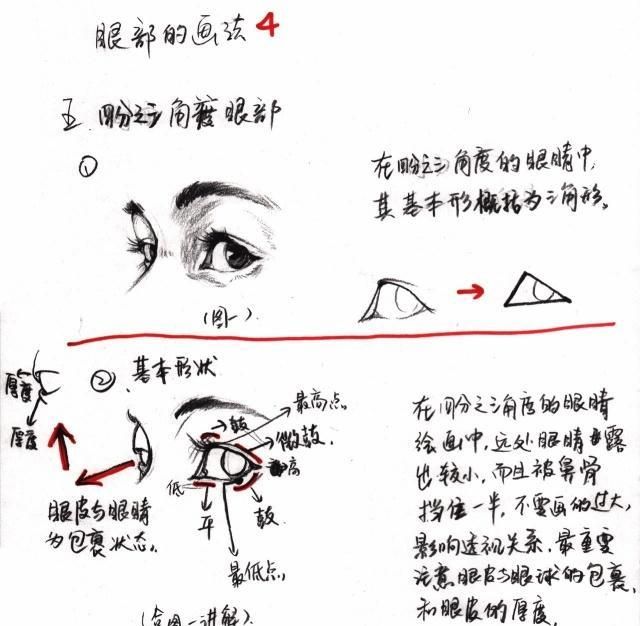 眼部的画法4
五.四分之三角度眼部
①
在四分之三角度的眼睛中,
其基本形概括为三角形。
(图一).
② 基本形状
厚度
厚度
最高点.
鼓
微鼓.
高
低
平
鼓
最低点.
眼皮与眼睛
为包裹状态.
在四分之三角度的眼睛
绘画中,远处眼睛露
出较小,而且被鼻骨
挡住一半,不要画的过大,
影响透视关系.最重要
注意眼皮与眼球的包裹,
和眼皮的厚度.
图一讲解).